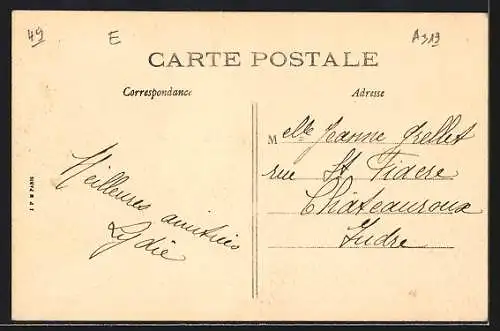 49 E A313
CARTE POSTALE
Correspondance
Adresse
Melle Jeanne Grellet
rue St Fidere
Châteauroux
Indre
Meilleures amitiés
Lydie
I P M PARIS